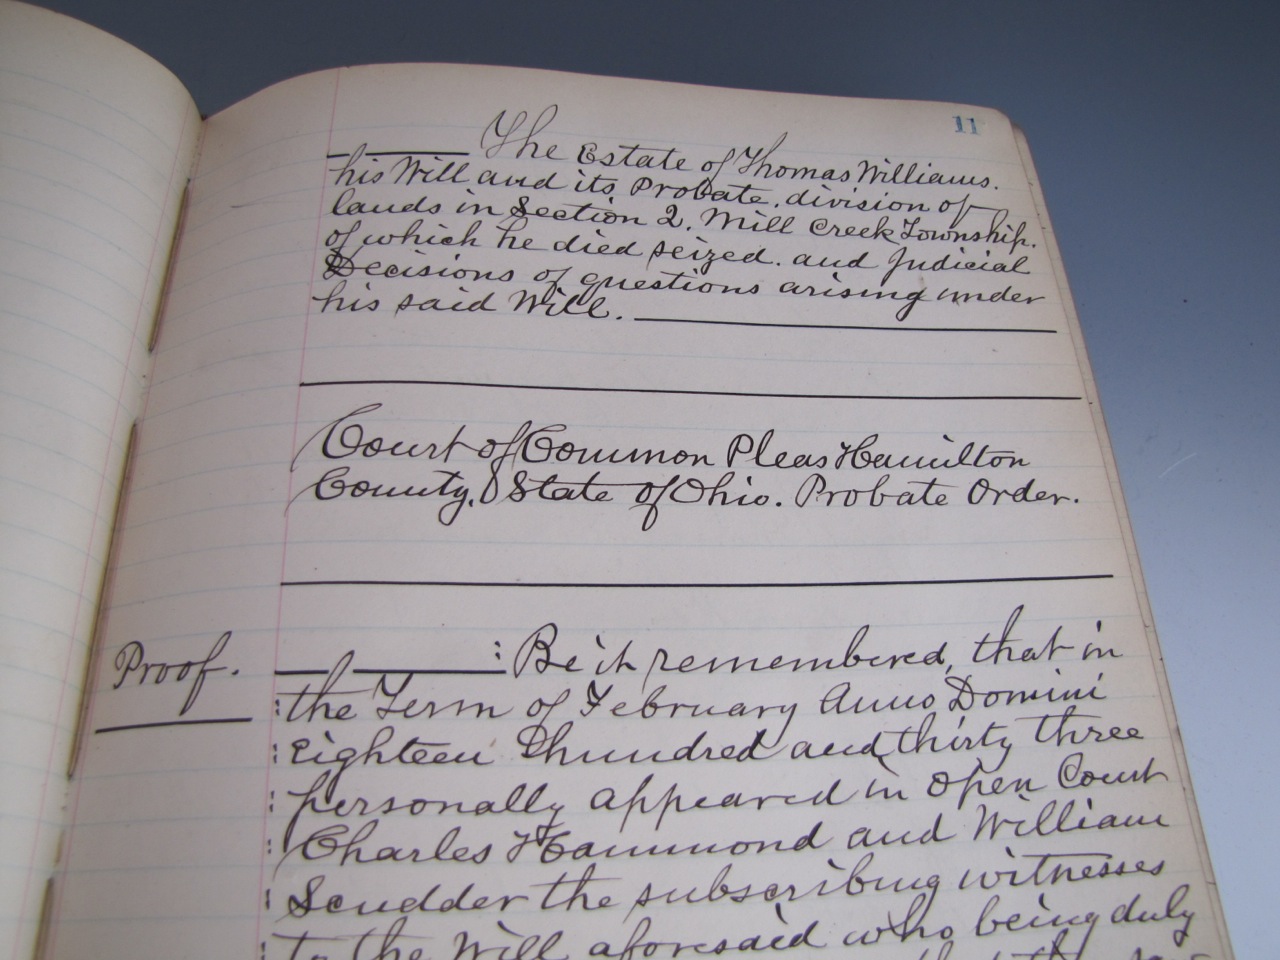 11
The Estate of Thomas Williams.
his Will and its Probate. division of
lands in Section 2. Mill Creek Township.
of which he died seized. and Judicial
Decisions of questions arising under
his said Will.
Court of Common Pleas Hamilton
County. State of Ohio. Probate Order.
Proof.
: Be it remembered, that in
: the Term of February Anno Domini
: Eighteen hundred and thirty three
: personally appeared in Open Court
: Charles Hammond and William
: Scudder the subscribing witnesses
: to the Will aforesaid who being duly